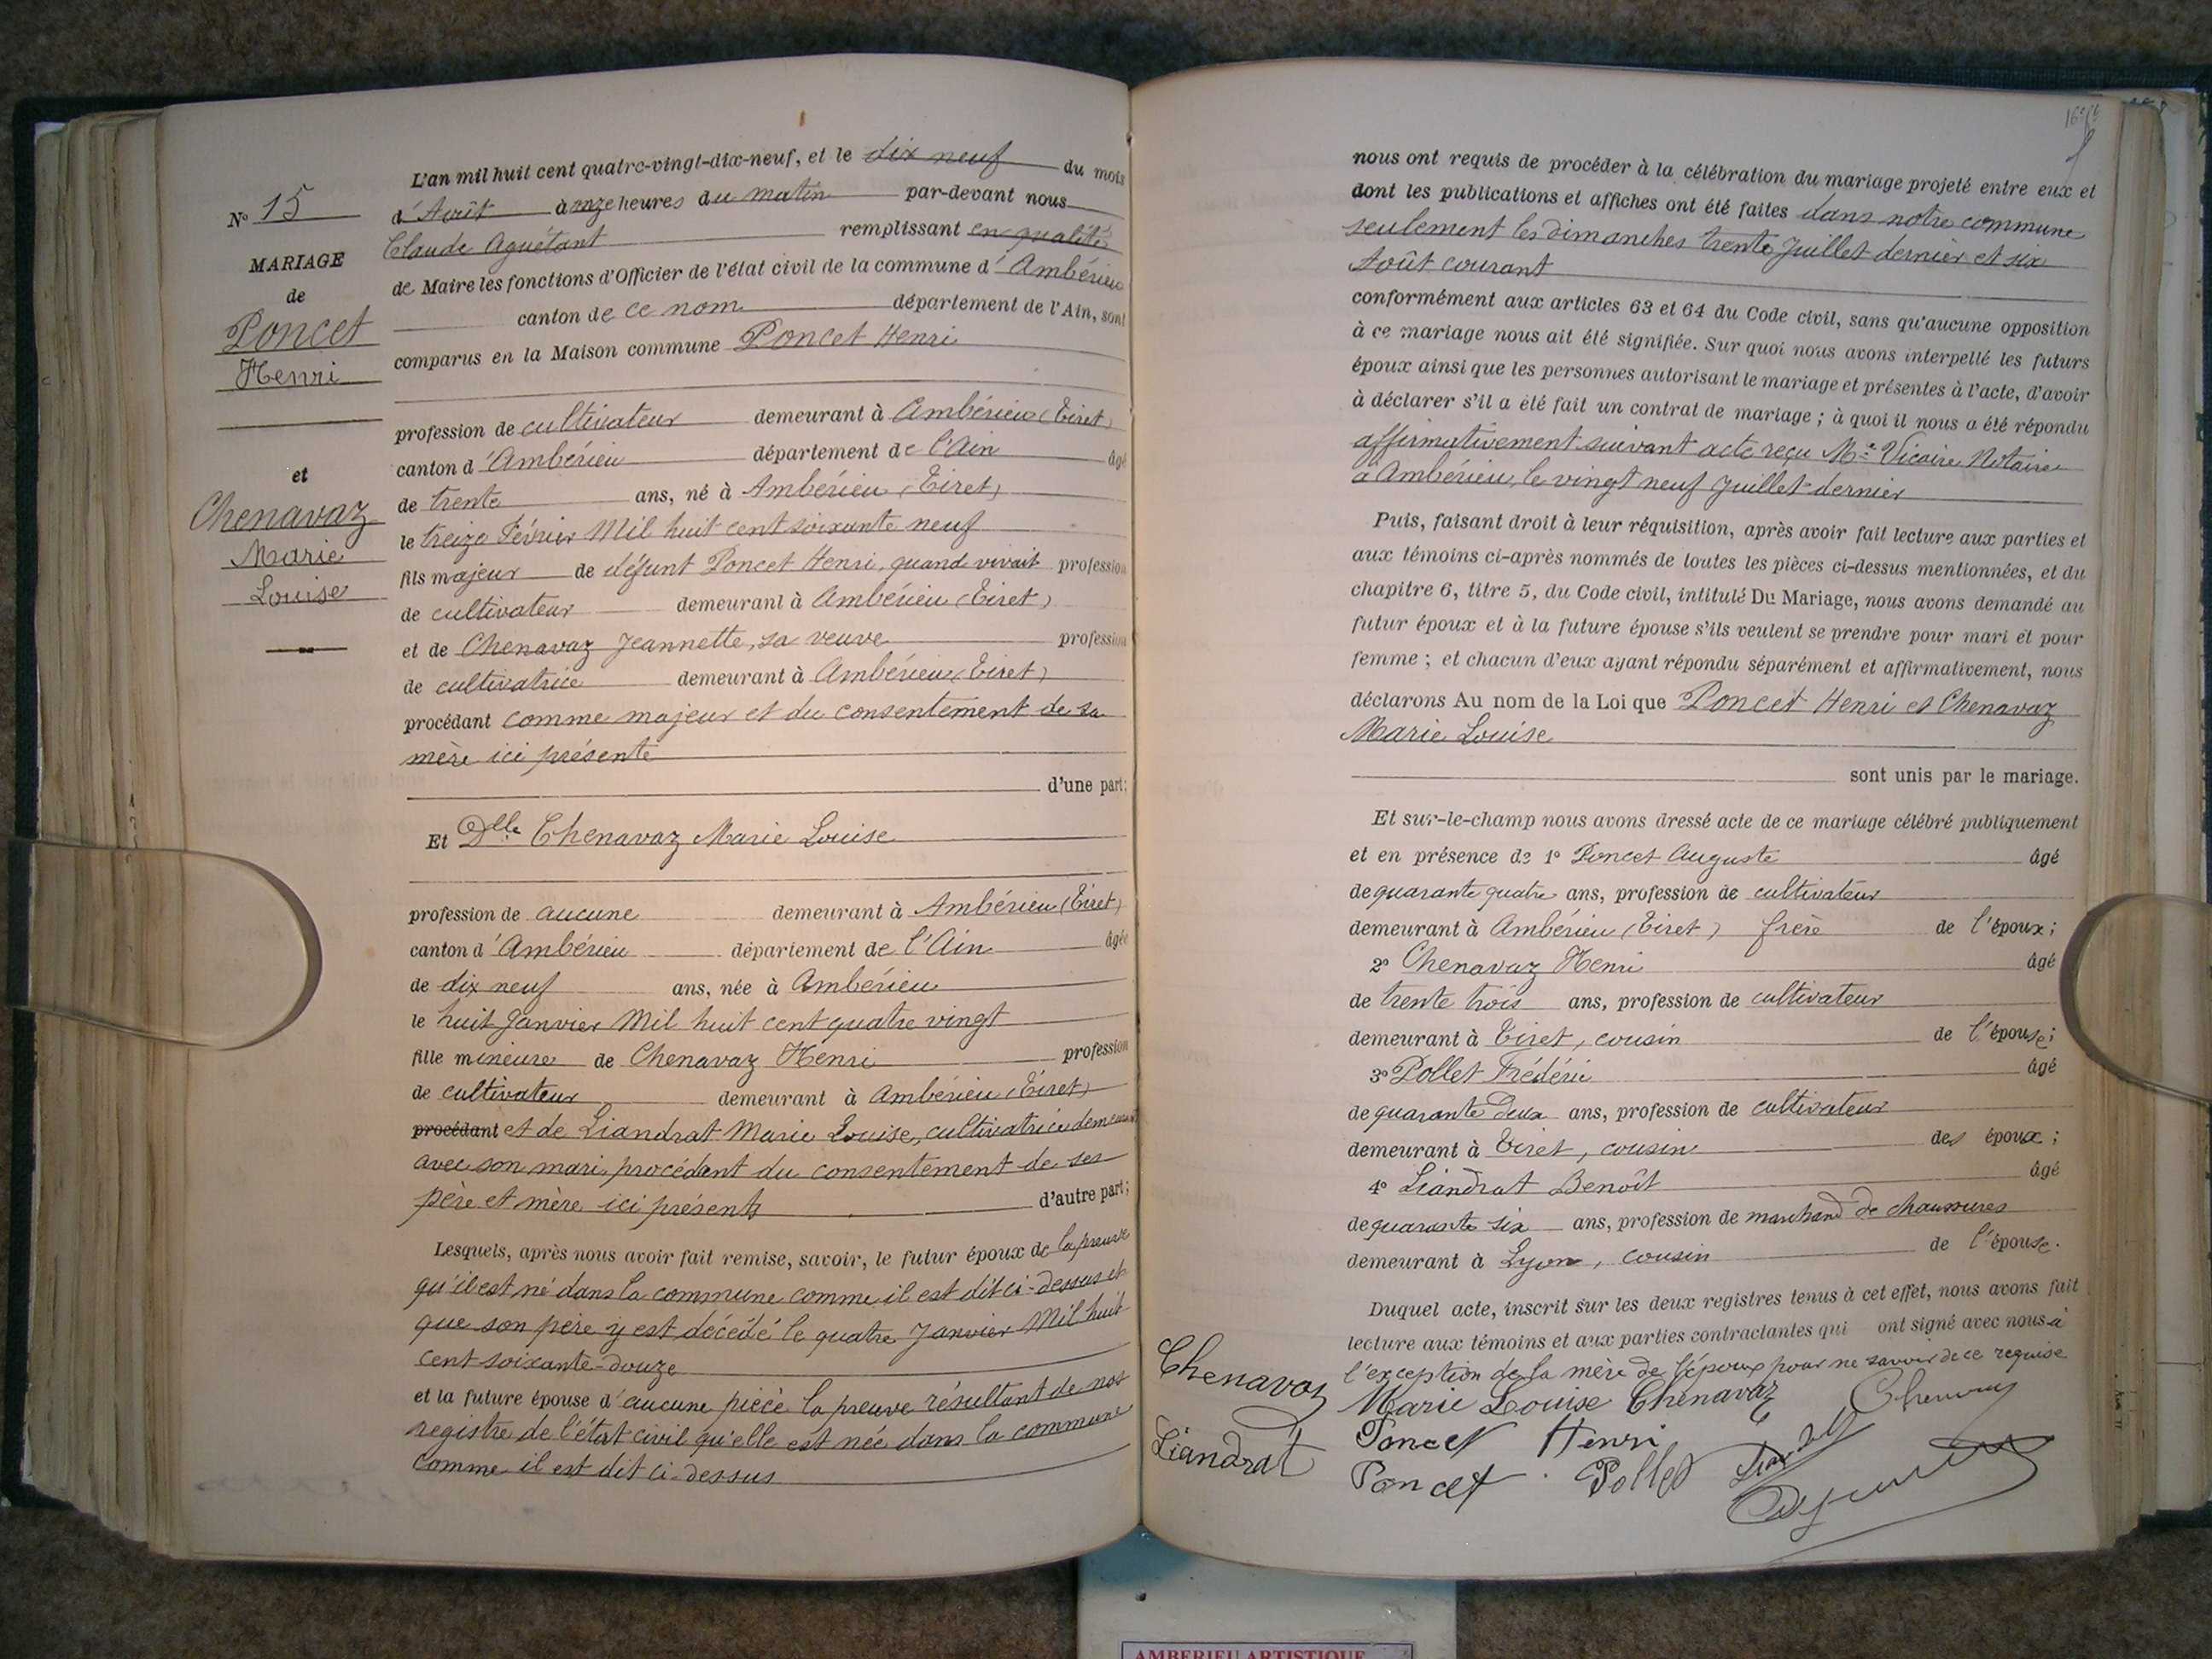 N° 15
MARIAGE
de
Poncet
Henri
et
Chenavaz
Marie
Louise
L'an mil huit cent quatre-vingt-dix-neuf, et le dix neuf du mois
d'Août à onze heures du matin par-devant nous
Claude Aguétant remplissant en qualité
de Maire les fonctions d'Officier de l'état civil de la commune d'Ambérieu
canton de ce nom département de l'Ain, sont
comparus en la Maison commune Poncet Henri
profession de cultivateur demeurant à Ambérieu (Tiret)
canton d'Ambérieu département de l'Ain âgé
de trente ans, né à Ambérieu (Tiret)
le treize Février Mil huit cent soixante neuf
fils majeur de défunt Poncet Henri, quand vivait profession
de cultivateur demeurant à Ambérieu (Tiret)
et de Chenavaz Jeannette, sa veuve profession
de cultivatrice demeurant à Ambérieu (Tiret)
procédant comme majeur et du consentement de sa
mère ici présente
d'une part;
Et Dlle Chenavaz Marie Louise
profession de aucune demeurant à Ambérieu (Tiret)
canton d'Ambérieu département de l'Ain âgée
de dix neuf ans, née à Ambérieu
le huit Janvier Mil huit cent quatre vingt
fille mineure de Chenavaz Henri profession
de cultivateur demeurant à Ambérieu (Tiret)
procédant et de Liandrat Marie Louise, cultivatrice demeurant
avec son mari, procédant du consentement de ses
père et mère ici présents d'autre part;
Lesquels, après nous avoir fait remise, savoir, le futur époux de la preuve
qu'il est né dans la commune comme il est dit ci-dessus et
que son père y est décédé le quatre Janvier Mil huit
cent soixante-douze
et la future épouse d'aucune pièce la preuve résultant de nos
registre de l'état civil qu'elle est née dans la commune
comme il est dit ci-dessus
nous ont requis de procéder à la célébration du mariage projeté entre eux et
dont les publications et affiches ont été faites dans notre commune
seulement les dimanches trente Juillet dernier et six
Août courant
conformément aux articles 63 et 64 du Code civil, sans qu'aucune opposition
à ce mariage nous ait été signifiée. Sur quoi nous avons interpellé les futurs
époux ainsi que les personnes autorisant le mariage et présentes à l'acte, d'avoir
à déclarer s'il a été fait un contrat de mariage; à quoi il nous a été répondu
affirmativement suivant acte reçu Me Vicaire Notaire
à Ambérieu, le vingt neuf Juillet dernier
Puis, faisant droit à leur réquisition, après avoir fait lecture aux parties et
aux témoins ci-après nommés de toutes les pièces ci-dessus mentionnées, et du
chapitre 6, titre 5, du Code civil, intitulé Du Mariage, nous avons demandé au
futur époux et à la future épouse s'ils veulent se prendre pour mari et pour
femme; et chacun d'eux ayant répondu séparément et affirmativement, nous
déclarons Au nom de la Loi que Poncet Henri et Chenavaz
Marie Louise
sont unis par le mariage.
Et sur-le-champ nous avons dressé acte de ce mariage célébré publiquement
et en présence de 1° Poncet Auguste âgé
de quarante quatre ans, profession de cultivateur
demeurant à Ambérieu (Tiret) frère de l'époux;
2° Chenavaz Henri âgé
de trente trois ans, profession de cultivateur
demeurant à Tiret, cousin de l'épouse;
3° Pollet Frédéric âgé
de quarante deux ans, profession de cultivateur
demeurant à Tiret, cousin des époux;
4° Liandrat Benoît âgé
de quarante six ans, profession de marchand de chaussures
demeurant à Lyon, cousin de l'épouse.
Duquel acte, inscrit sur les deux registres tenus à cet effet, nous avons fait
lecture aux témoins et aux parties contractantes qui ont signé avec nous à
l'exception de la mère de l'époux pour ne savoir de ce requise
Chenavaz Marie Louise Chenavaz Chenavaz
Liandrat Poncet Henri
Poncet Pollet
AMBERIEU ARTISTIQUE